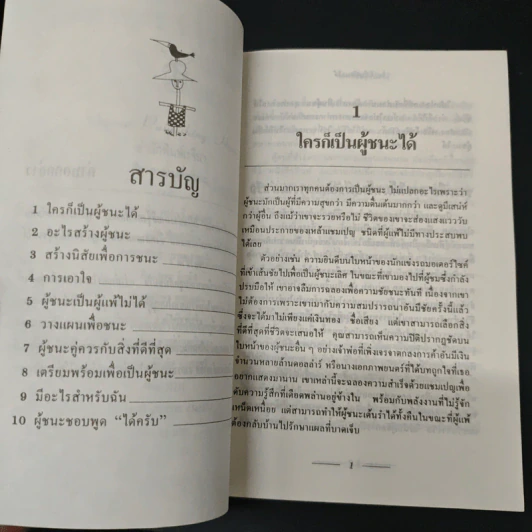 สารบัญ
1 ใครก็เป็นผู้ชนะได้
2 อะไรสร้างผู้ชนะ
3 สร้างนิสัยเพื่อการชนะ
4 การเอาใจ
5 ผู้ชนะเป็นผู้แพ้ไม่ได้
6 วางแผนเพื่อชนะ
7 ผู้ชนะคู่ควรกับสิ่งที่ดีที่สุด
8 เตรียมพร้อมเพื่อเป็นผู้ชนะ
9 มีอะไรสำหรับฉัน
10 ผู้ชนะชอบพูด “ได้ครับ”
1
ใครก็เป็นผู้ชนะได้
ส่วนมากเราทุกคนต้องการเป็นผู้ชนะ ไม่แปลกอะไรเพราะว่า
ผู้ชนะมักเป็นผู้ที่มีความสุขกว่า มีความตื่นเต้นมากกว่า และดูมีเสน่ห์
กว่าผู้อื่น ถึงแม้ว่าเขาจะรวยหรือไม่ ชีวิตของเขาจะส่องแสงแวววับ
เหมือนประกายของเหล้าแชมเปญ ชนิดที่ผู้แพ้ไม่มีทางประสบพบ
ได้เลย
ตัวอย่างเช่น ความยินดีบนใบหน้าของนักแข่งรถมอเตอร์ไซค์
ที่เข้าเส้นชัยไปเพื่อเป็นผู้ชนะเลิศ ในขณะที่เขามองไปที่ผู้ชมซึ่งกำลัง
ปรบมือให้ เขาอาจลืมการฉลองเพื่อความชัยชนะทันที เนื่องจากเขา
ไม่ต้องการเพราะเขาเมากับความสมปรารถนาอันมีชัยครั้งนี้แล้ว
ซึ่งจะได้มาไม่เพียงแค่เงินทอง ชื่อเสียง แต่เขาสามารถเลือกสิ่ง
ที่ดีที่สุดที่ชีวิตจะเสนอให้ คุณสามารถเห็นความปิติปรากฏชัดบน
ใบหน้าของผู้ชนะอื่น ๆ อย่างเจ้าพ่อที่เพิ่งเจรจาตกลงการค้าอันมีเงิน
จำนวนหลายล้านดอลล่าร์ หรือนางเอกภาพยนตร์ที่ได้บทถูกใจที่เธอ
อยากแสดงมานาน เขาเหล่านี้จะฉลองความสำเร็จด้วยแชมเปญเพื่อ
ดับความรู้สึกที่เดือดพล่านอยู่ข้างใน พร้อมกับพลังงานที่ไม่รู้จัก
เหน็ดเหนื่อย แต่สามารถทำให้ผู้ชนะเต้นรำได้ทั้งคืนในขณะที่ผู้แพ้
ต้องกลับบ้านไปรักษาแผลที่บาดเจ็บ
1